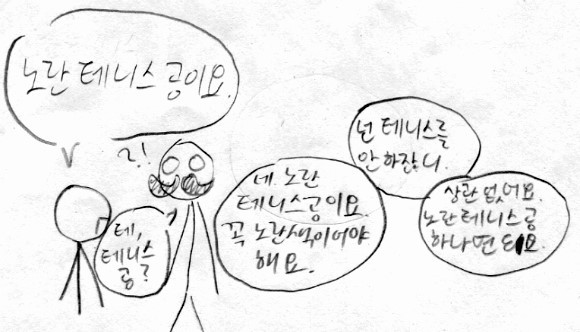 노란 테니스 공이요.
?!
테,
테니스
공?
네. 노란
테니스공이요.
꼭 노란색이어야
해요.
넌 테니스를
안 하잖니.
상관 없어요.
노란 테니스 공
하나면 돼요.